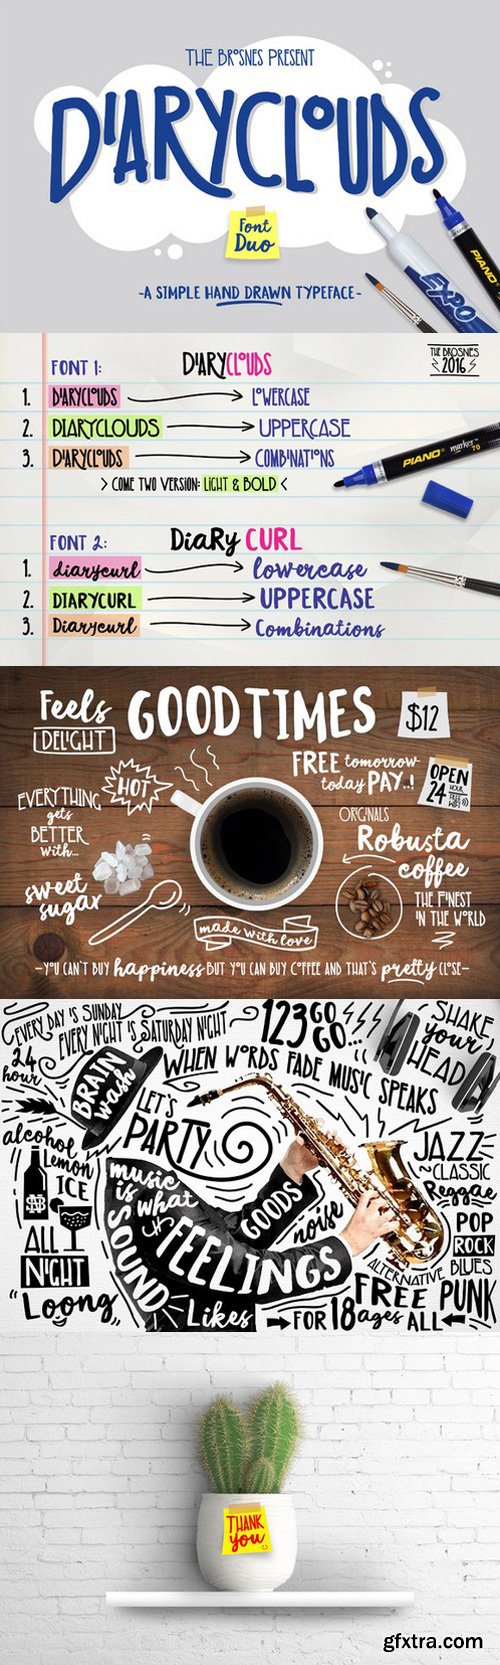 THE BROSNES PRESENT
DIARYCLOUDS
Font
Duo
-A SIMPLE HAND DRAWN TYPEFACE-
EXPO
PIANO
FONT 1:
DIARYCLOUDS
THE BROSNES
2016
1. DIARYCLOUDS LOWERCASE
2. DIARYCLOUDS UPPERCASE
3. DIARYCLOUDS COMBINATIONS
PIANO marker 70
> COME TWO VERSION: LIGHT & BOLD <
FONT 2:
DiaRy CURL
1. diarycurl lowercase
2. DIARYCURL UPPERCASE
3. Diarycurl Combinations
Feels
DELIGHT
GOOD TIMES
$12
HOT
FREE tomorrow
today PAY..!
OPEN
24 HOUR
FREE WIFI
EVERYTHING
gets
BETTER
with...
sweet
sugar
ORGINALS
Robusta
coffee
THE FINEST
IN THE WORLD
made with love
-YOU CAN'T BUY happiness BUT YOU CAN BUY COFFEE AND THAT'S pretty CLOSE-
EVERY DAY IS SUNDAY
EVERY NIGHT IS SATURDAY NIGHT
123 GO
GO...
SHAKE
your
HEAD
24
hour
BRAIN
wash
WHEN WORDS FADE MUSIC SPEAKS
LET'S
PARTY
alcohol
Lemon
ICE
JAZZ
~CLASSIC
Reggae
music
is what
FEELINGS
SOUND
Likes
GOODS
noise
POP
ROCK
BLUES
ALTERNATIVE
FREE PUNK
ALL
NIGHT
"Loong"
FOR 18 ages ALL
THANK
you
gfxtra.com